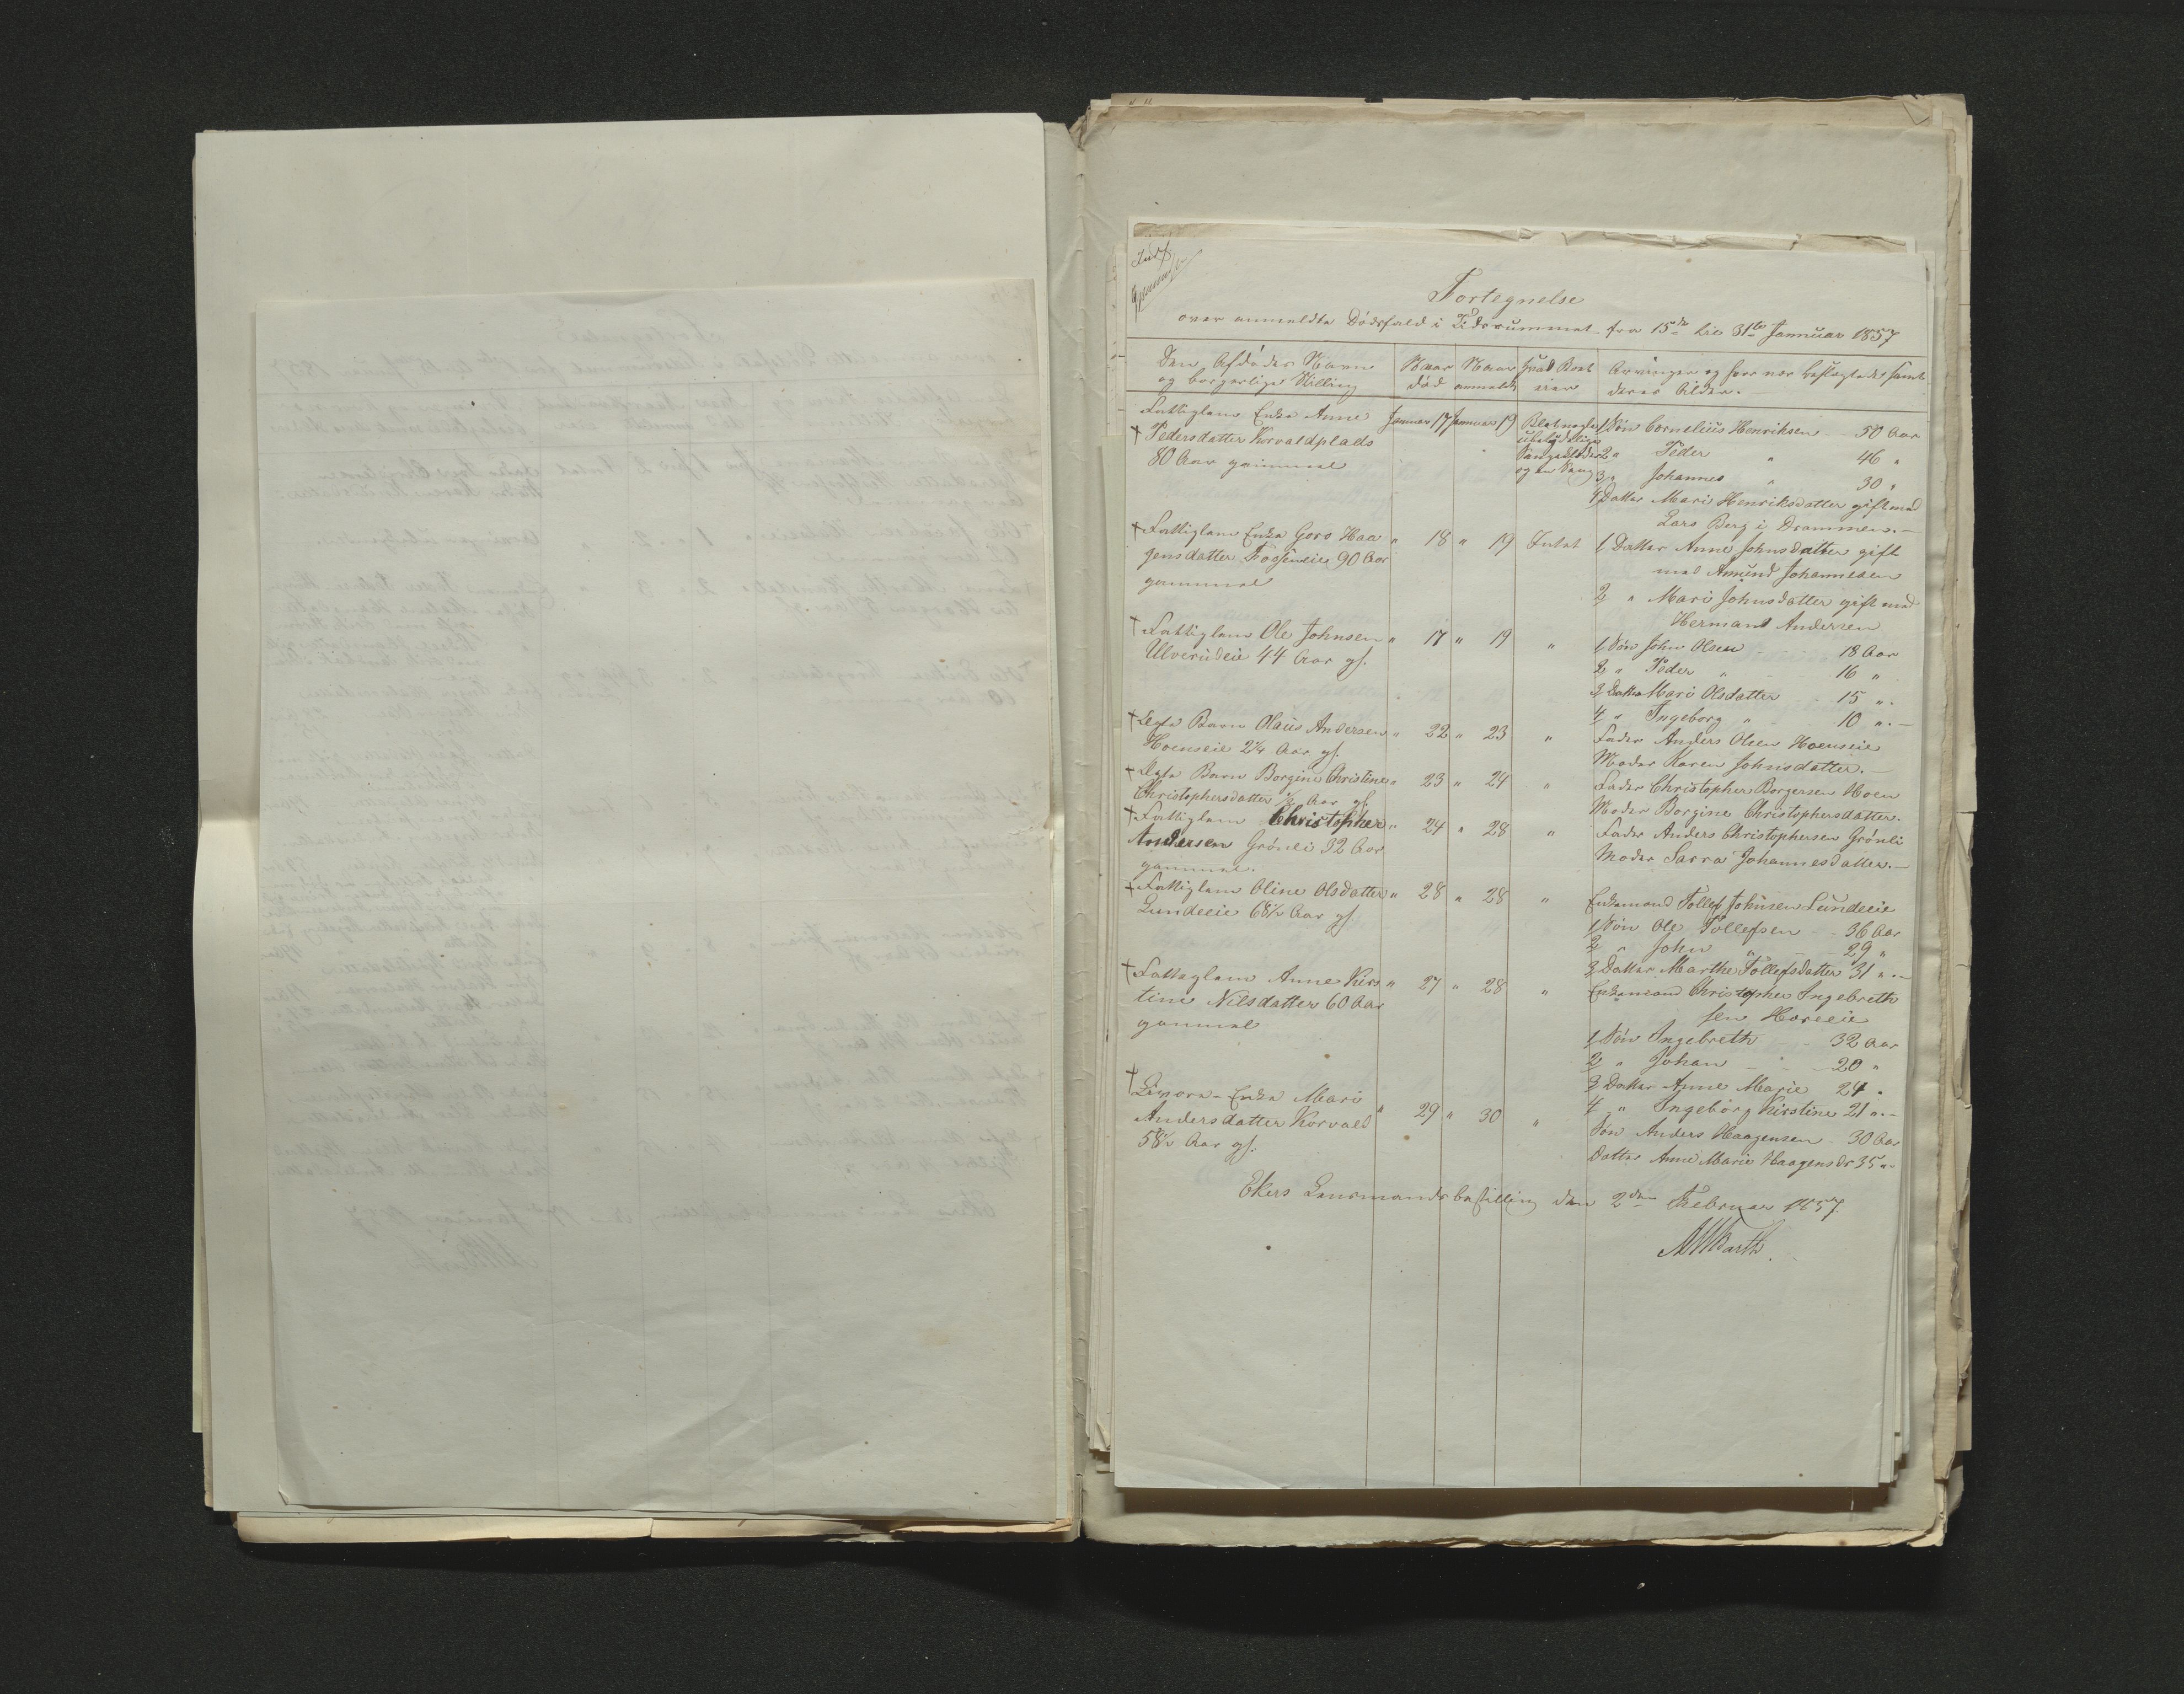 Fortegnelse
over anmeldte Dödsfald i Tidsrummet fra 15de til 31te Januar 1857
Den Afdödes Navn og borgerlige Stilling
Naar död
Naar anmeldt
Hvad Boet eier
Arvinger og hvor nær beslægtede samt deres Alder.
Fattiglem Enke Anne
Pedersdatter Korvaldplads
80 Aar gammel
Januar 17 Januar 19
og en Seng
1 Sön Cornelius Henriksen 50 Aar
2 " Peder " 46 "
3 " Johannes " 30 "
4 Datter Mari Henriksdatter gift med
Lars Berg i Drammen.
Fattiglem Enke Goro Haa
gensdatter Fossneie 90 Aar
gammel
" 18 " 19 Intet
1 Datter Anne Johnsdatter gift
med Amund Johannesen
2 " Mari Johnsdatter gift med
Herman Andersen
Fattiglem Ole Johnsen
Ulverudeie 44 Aar gl.
" 17 " 19 "
1 Sön John Olsen 18 Aar
2 " Peder " 16 "
3 Datter Mari Olsdatter 15 "
4 " Ingeborg " 10 "
Ægte Barn Olaus Andersen
Hoenseie 2¼ Aar gl.
" 22 " 23 "
Fader Anders Olsen Hoenseie
Moder Karen Johnsdatter.
Ægte Barn Borgine Christine
Christophersdatter ½ Aar gl.
" 23 " 24 "
Fader Christopher Borgersen Hoen
Moder Borgine Christophersdatter.
Fattiglem Christopher
Andersen Grönli 32 Aar
gammel.
" 24 " 28 "
Fader Anders Christophersen Grönli
Moder Sarra Johannesdatter.
Fattiglem Oline Olsdatter
Lundeeie 68½ Aar gl.
" 28 " 28 "
Enkemand Tollef Johnsen Lundeeie
1 Sön Ole Tollefsen 36 Aar
2 " John " 29 "
3 Datter Marthe Tollefsdatter 31 "
Fattiglem Anne Kirs
tine Nilsdatter 60 Aar
gammel
" 27 " 28 "
Enkemand Christopher Ingebreth
sen Horeeie
1 Sön Ingebreth 32 Aar
2 " Johan 20 "
3 Datter Anne Marie 24 "
4 " Ingeborg Kirstine 21 "
Enke Mari
Andersdatter Korvald
58½ Aar gl.
" 29 " 30 "
Sön Anders Haagensen 30 Aar
Datter Anne Marie Haagensdr 35 "
Ekers Lensmandsbestilling den 2den Februar 1857.
Barth.